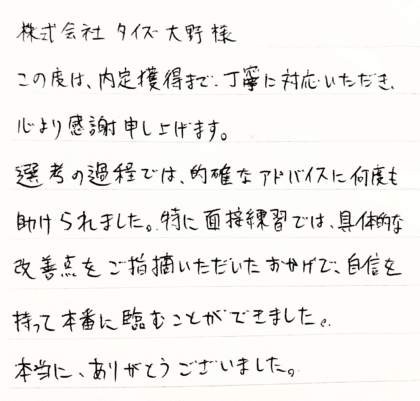 株式会社 タイズ 大野 様
この度は、内定獲得まで、丁寧に対応いただき、
心より感謝申し上げます。
選考の過程では、的確なアドバイスに何度も
助けられました。特に面接練習では、具体的な
改善点をご指摘いただいたおかげで、自信を
持って本番に臨むことができました。
本当に、ありがとうございました。